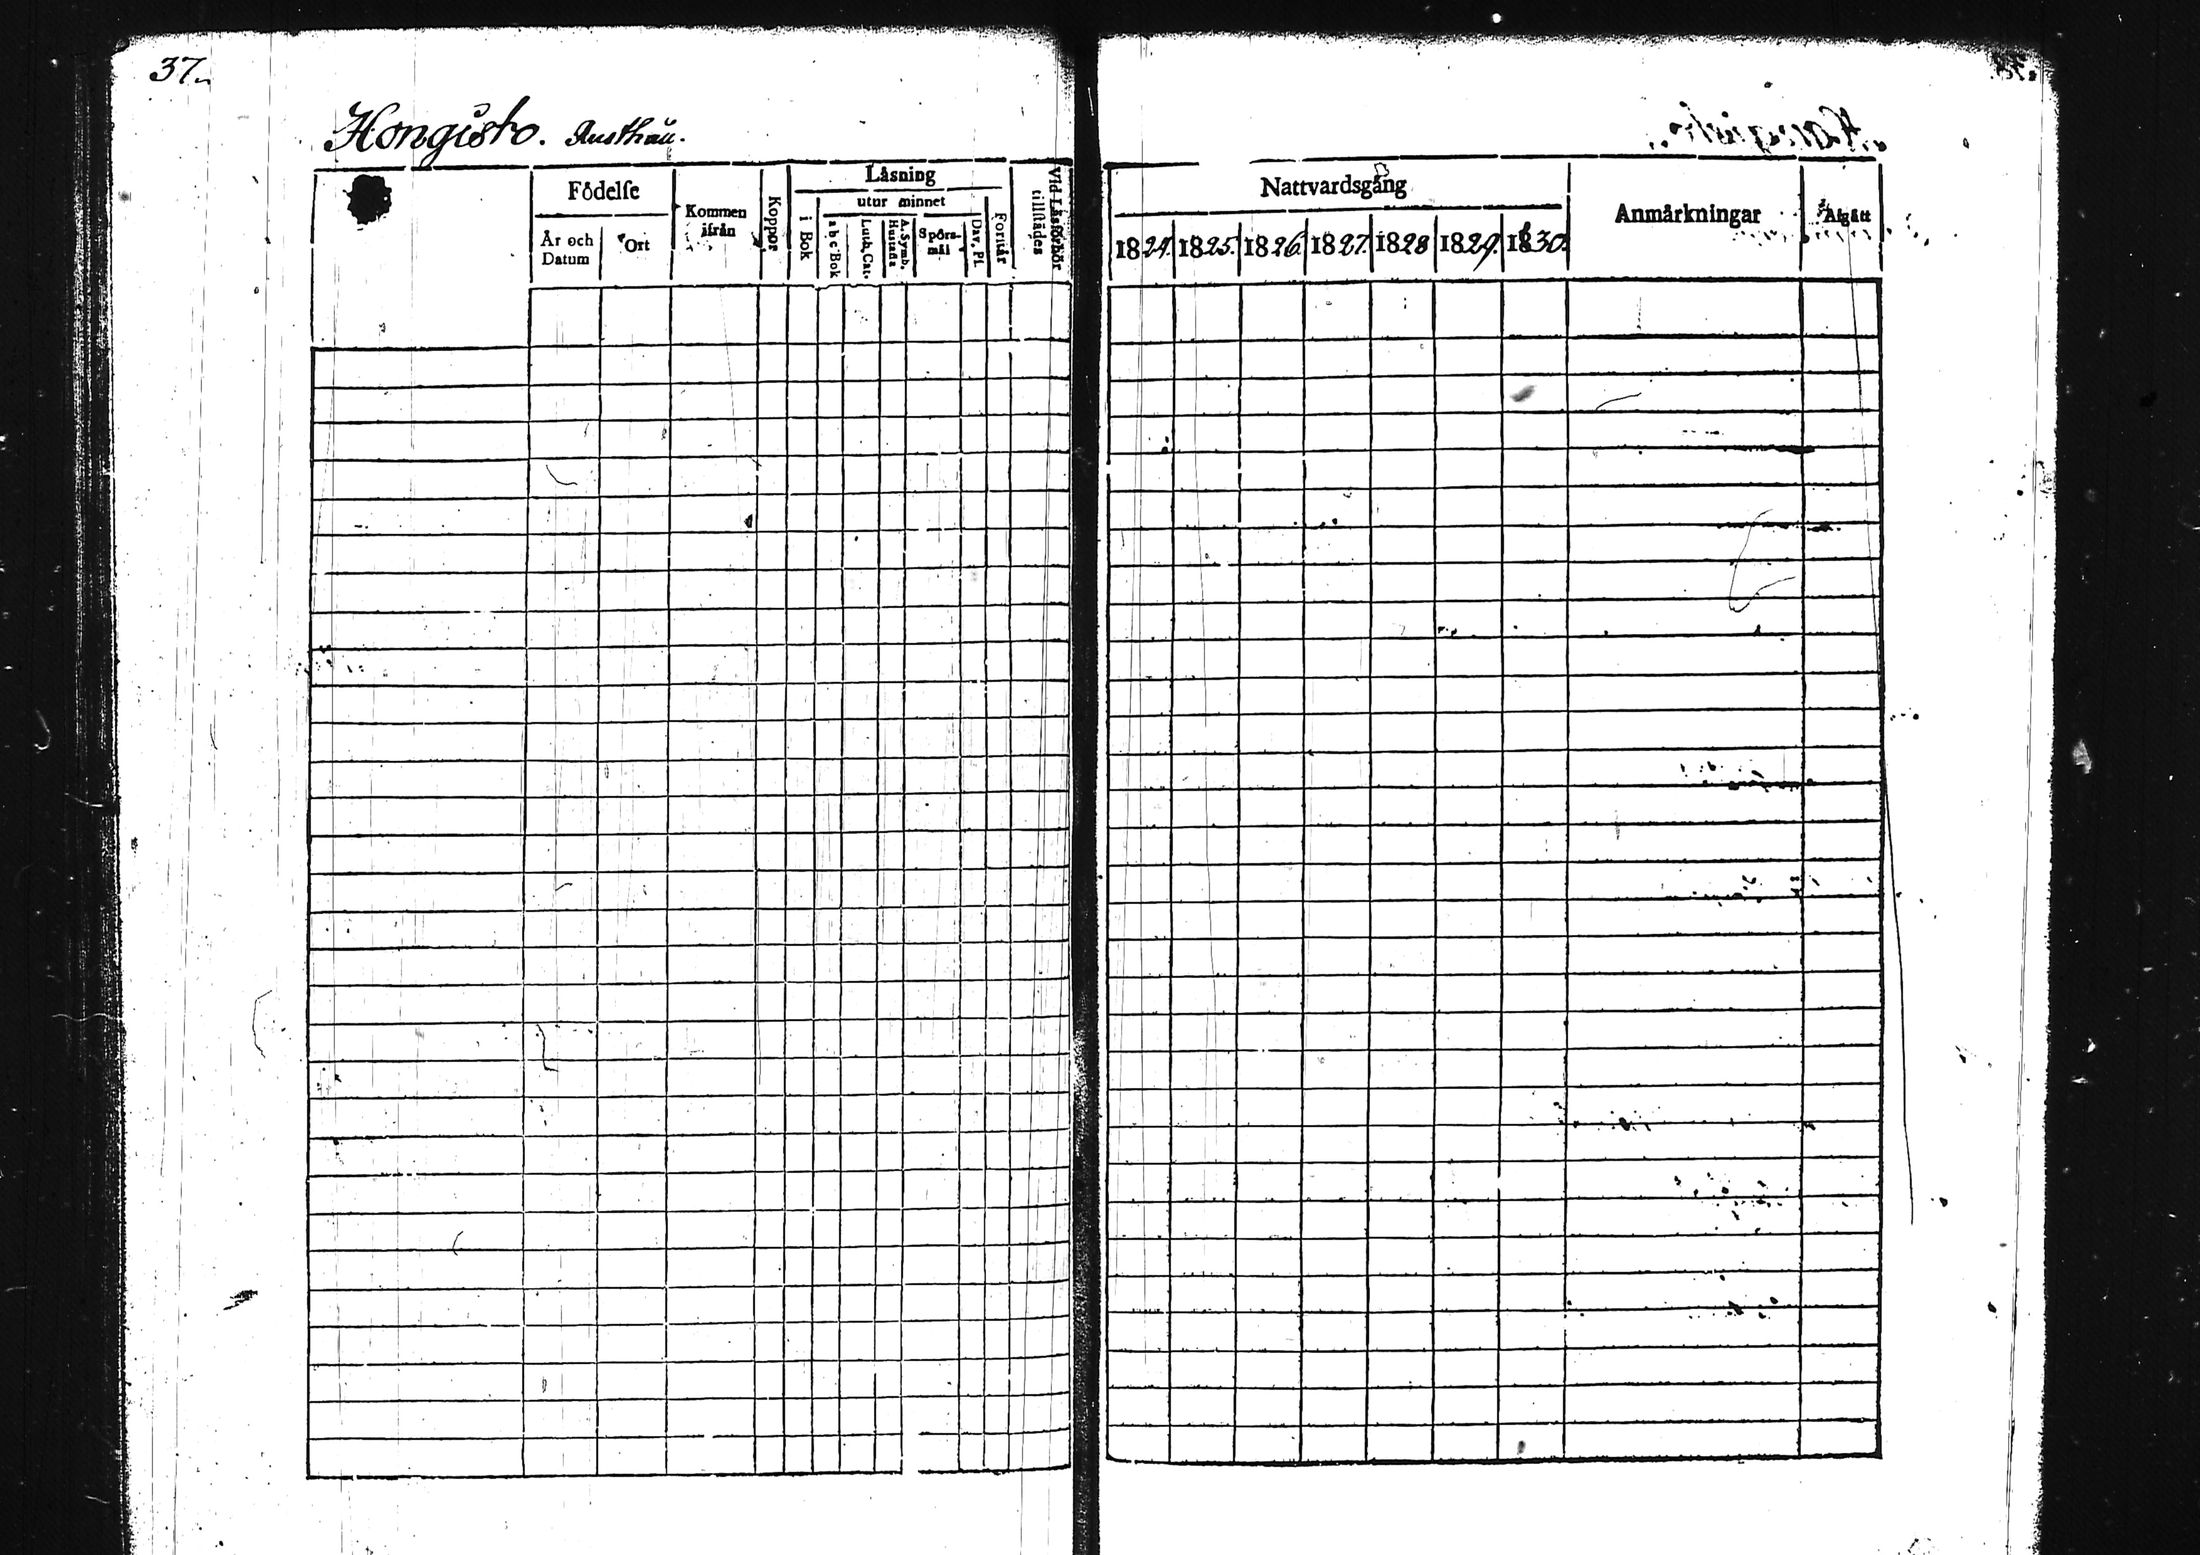 37.
Hongisto. Rusthåll.
Födelse
Kommen ifrån
Koppor
Låsning
Vid Låsförhör tillstådes
År och Datum
Ort
i Bok
utur minnet
Förstår
a b c Bok
Luth. Cat.
A. Symb. Hustafla
Spörsmål
Dav. Ps.
Nattvardsgång
Anmårkningar
Afgått
1824. 1825. 1826. 1827. 1828 1829. 1830.